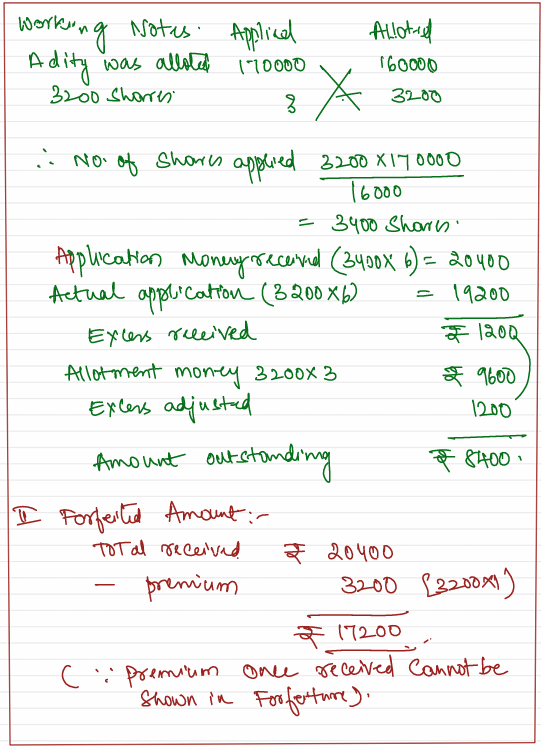 Working Notes. Applied Alloted
Adity was alloted 170000 160000
3200 Shares. ? 3200
∴ No. of Shares applied 3200 X 170000
16000
= 3400 Shares.
Application Money received (3400X 6) = 20400
Actual application (3200X6) = 19200
Excess received ₹ 1200
Allotment money 3200X3 ₹ 9600
Excess adjusted 1200
Amount outstanding ₹ 8400.
II Forfeited Amount:-
Total received ₹ 20400
- premium 3200 (3200X1)
₹ 17200
(∵ premium once received Cannot be
Shown in Forfeiture).